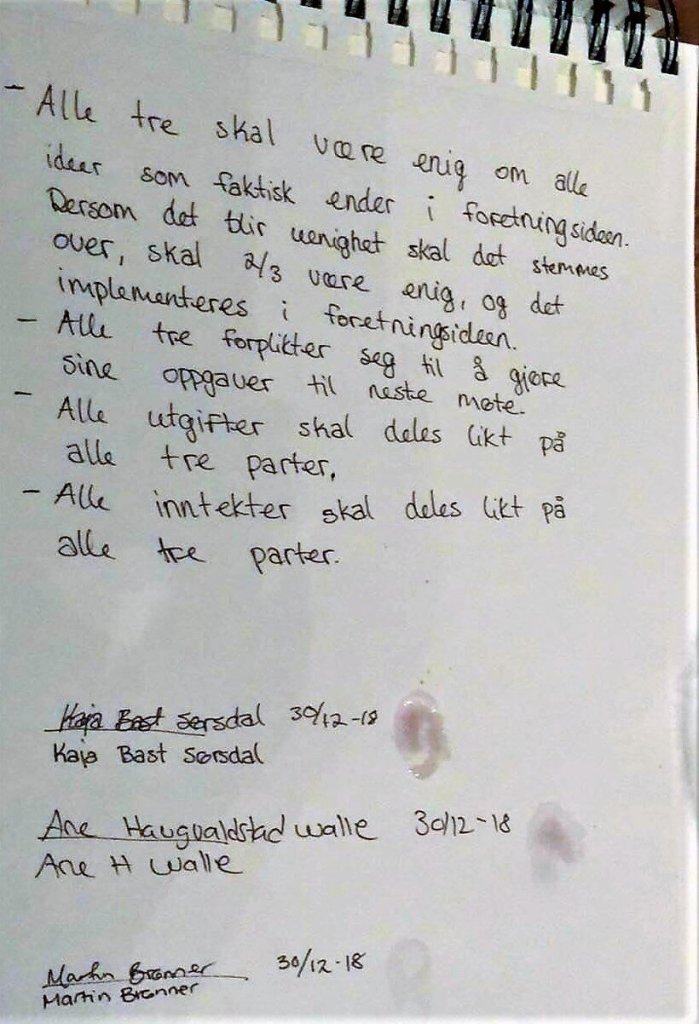 - Alle tre skal være enig om alle
ideer som faktisk ender i foretningsideen.
Dersom det blir uenighet skal det stemmes
over, skal 2/3 være enig, og det
implementeres i foretningsideen.
- Alle tre forplikter seg til å gjøre
sine oppgaver til neste møte.
- Alle utgifter skal deles likt på
alle tre parter,
- Alle inntekter skal deles likt på
alle tre parter.
Kaja Bast Sørsdal 30/12-18
Kaja Bast Sørsdal
Ane Haugvaldstad Walle 30/12-18
Ane H Walle
Martin Brønner 30/12-18
Martin Brønner